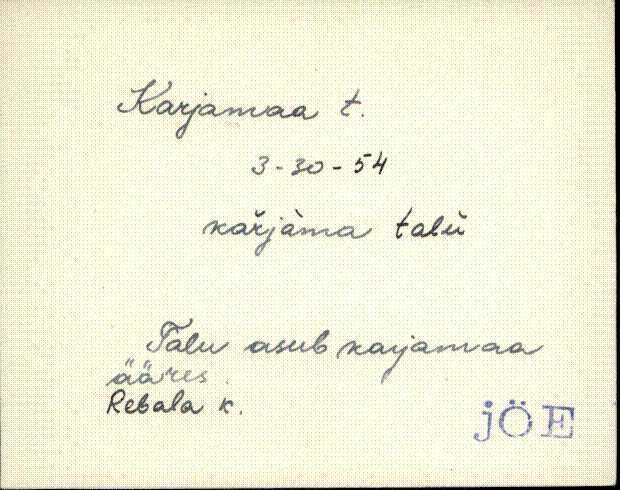 Karjamaa t.
3-30-54
kařjàma talŭ
Talu asub karjamaa
ääres.
Rebala k.
jÖE